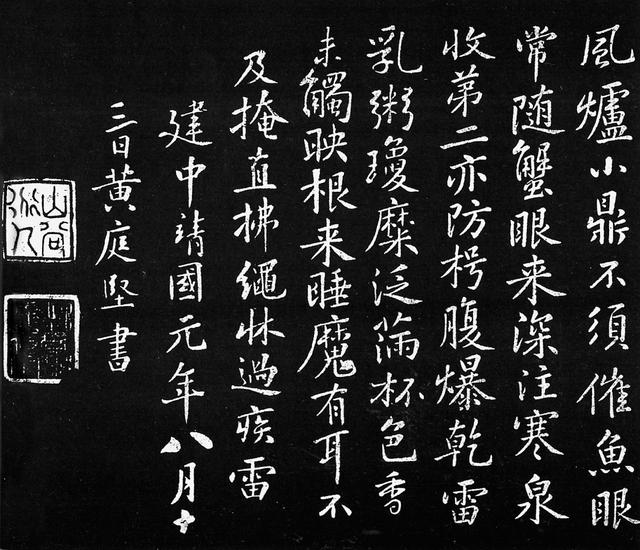 風爐小鼎不須催魚眼
常随蟹眼来深注寒泉
收第二亦防枵腹爆乾雷
乳粥瓊糜泛滿杯色香
未觸映根来睡魔有耳不
及掩直拂繩牀過疾雷
建中靖國元年八月十
三日黄庭堅書
山谷